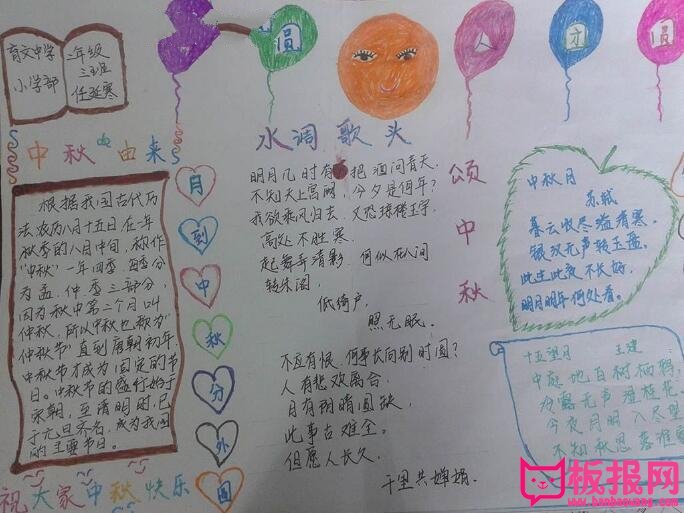 育文中学
小学部
二年级
三班
任延寒
圆
人
方
圆
中秋由来
根据我国古代历
法农历八月十五日在一年
秋季的八月中旬.称作
"中秋"一年四季.四季分
为孟.仲季三部分,
因为秋中第二个月叫
仲秋,所以中秋也称为"
仲秋节"直到唐朝初年.
中秋节才成为固定的节
日。中秋节的盛行始于
宋朝,至清明时,已
于元旦齐名,成为我国
的主要节日。
月
到
中
秋
分
外
圆
水调歌头
明月几时有 把酒问青天
不知天上宫阙,今夕是何年?
我欲乘风归去,又恐琼楼玉宇
高处不胜寒
起舞弄清影 何似在人间
转朱阁,
低绮户,
照无眠.
不应有恨.何事长向别时圆?
人有悲欢离合,
月有阴晴圆缺,
此事古难全。
但愿人长久,
千里共婵娟.
颂
中
秋
中秋月
苏轼
暮云收尽溢清寒,
银汉无声转玉盘。
此生此夜不长好,
明月明年何处看。
十五望月 王建
中庭地白树栖鸦
冷露无声湿桂花
今夜月明人尽望
不知秋思落谁
祝大家中秋快乐
板报网
www.banbaowang.com